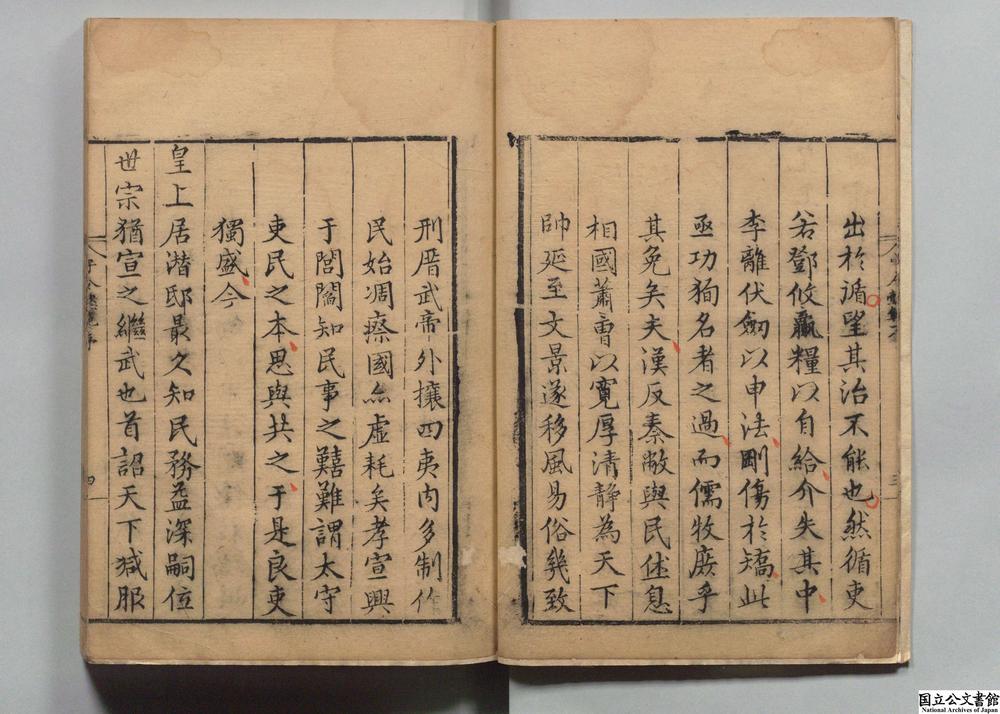 出於循望其治不能也然循吏
若鄧攸羸糧以自給介失其中
李離伏劔以申法剛傷於矯此
亟功狥名者之過而儒牧庶乎
其免矣夫漢反秦敝與民休息
相國蕭曹以寛厚清静為天下
帥延至文景遂移風易俗幾致
刑厝武帝外攘四夷内多制作
民始凋瘵國亦虚耗矣孝宣興
于閭閻知民事之囏難謂太守
吏民之本思與共之于是良吏
獨盛今
皇上居潜邸最久知民務益深嗣位
世宗猶宣之繼武也首詔天下减服
四
国立公文書館
National Archives of Japan